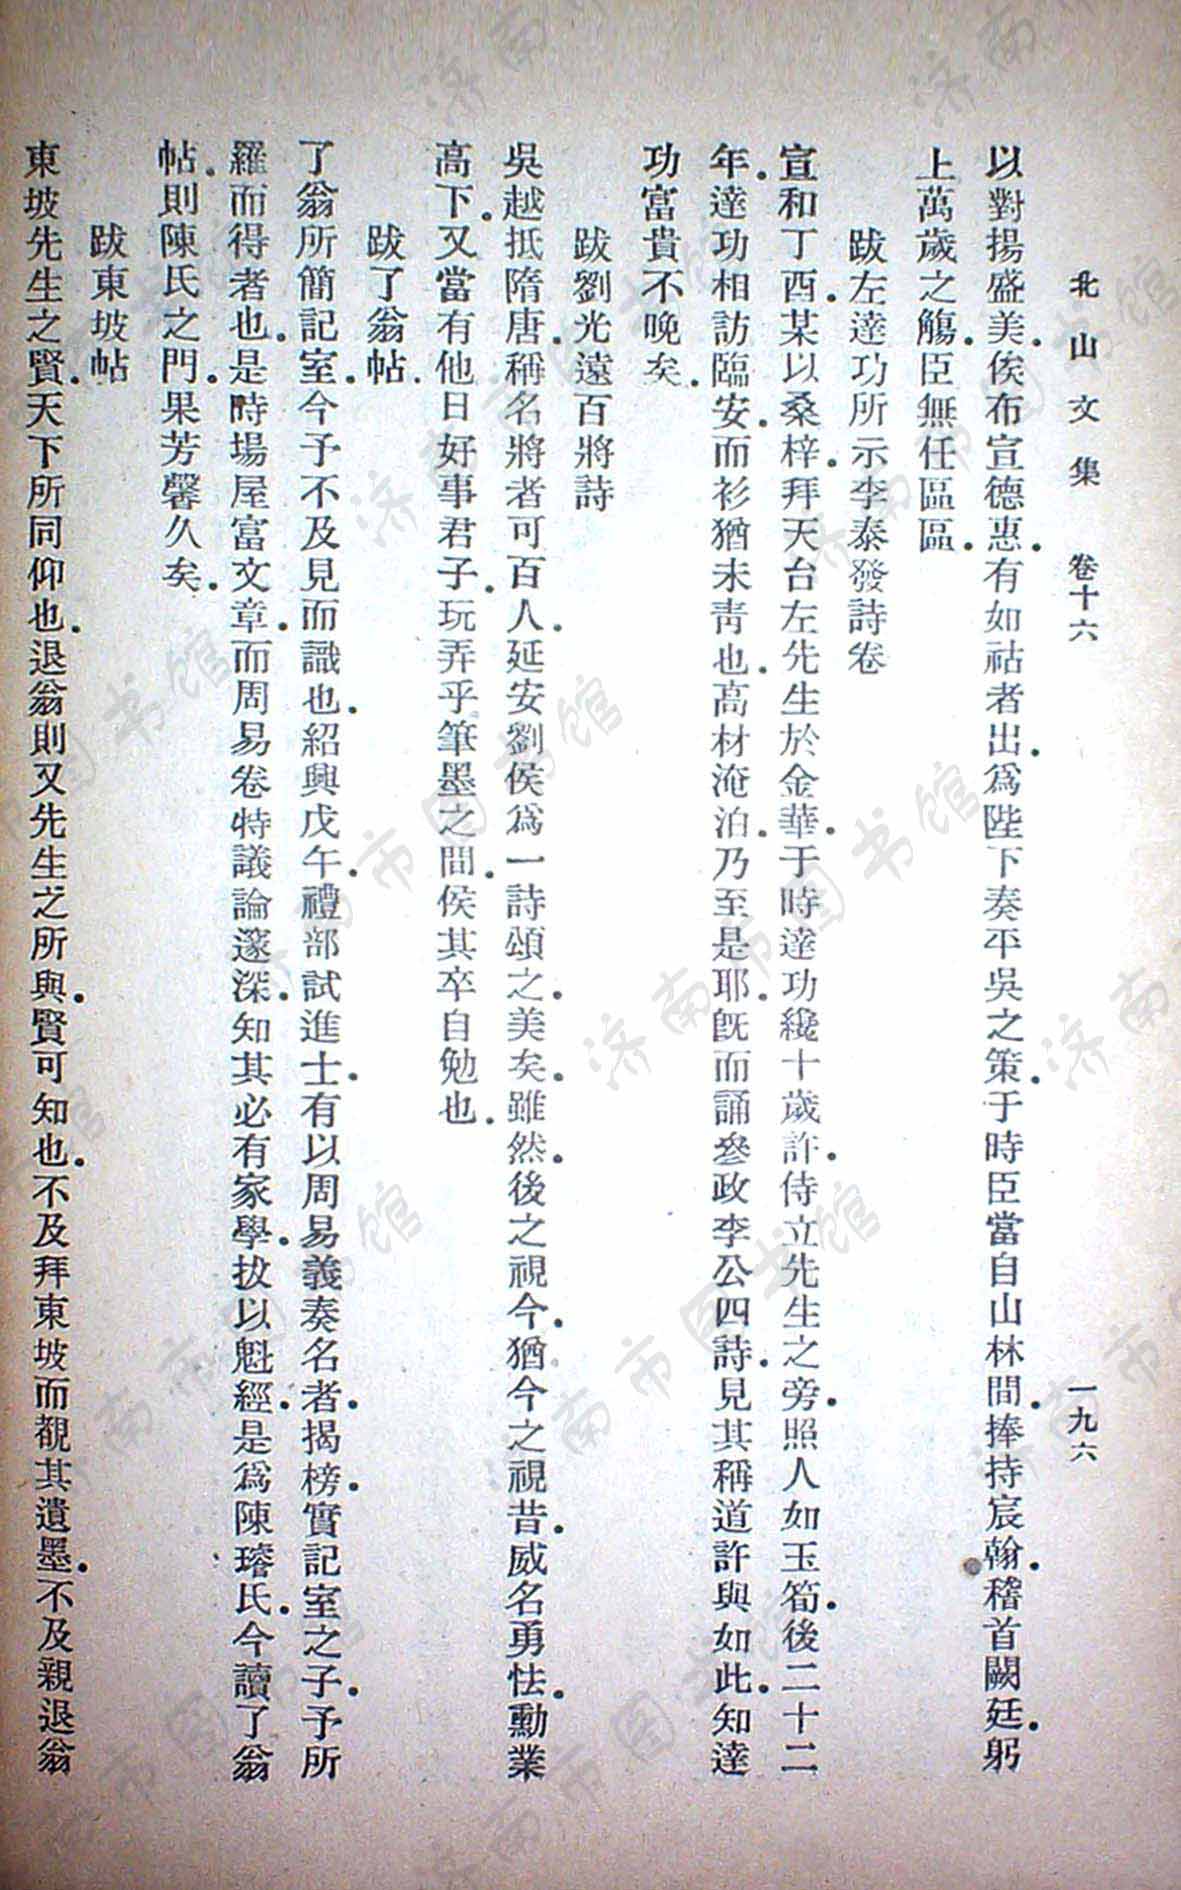 北山文集　卷十六　一九六
以對揚盛美.俟布宣德惠.有如祜者出.爲陛下奏平吳之策.于時臣當自山林間.捧持宸翰.稽首闕廷.躬
上萬歲之觴.臣無任區區.
跋左達功所示李泰發詩卷
宣和丁酉.某以桑梓.拜天台左先生於金華.于時達功纔十歲許.侍立先生之旁.照人如玉筍.後二十二
年.達功相訪臨安.而衫猶未靑也.高材淹泊.乃至是耶.旣而誦參政李公四詩.見其稱道許與如此.知達
功富貴不晚矣.
跋劉光遠百將詩
吳越抵隋唐.稱名將者可百人.延安劉侯爲一詩頌之.美矣.雖然.後之視今.猶今之視昔.威名勇怯.勳業
高下.又當有他日好事君子.玩弄乎筆墨之間.侯其卒自勉也.
跋了翁帖.
了翁所簡記室.今予不及見而識也.紹興戊午.禮部試進士.有以周易義奏名者.揭榜.實記室之子.予所
羅而得者也.是時場屋富文章.而周易卷特議論邃深.知其必有家學.拔以魁經.是爲陳璿氏.今讀了翁
帖.則陳氏之門.果芳馨久矣.
跋東坡帖
東坡先生之賢.天下所同仰也.退翁則又先生之所與.賢可知也.不及拜東坡而覩其遺墨.不及親退翁
济南市图书馆